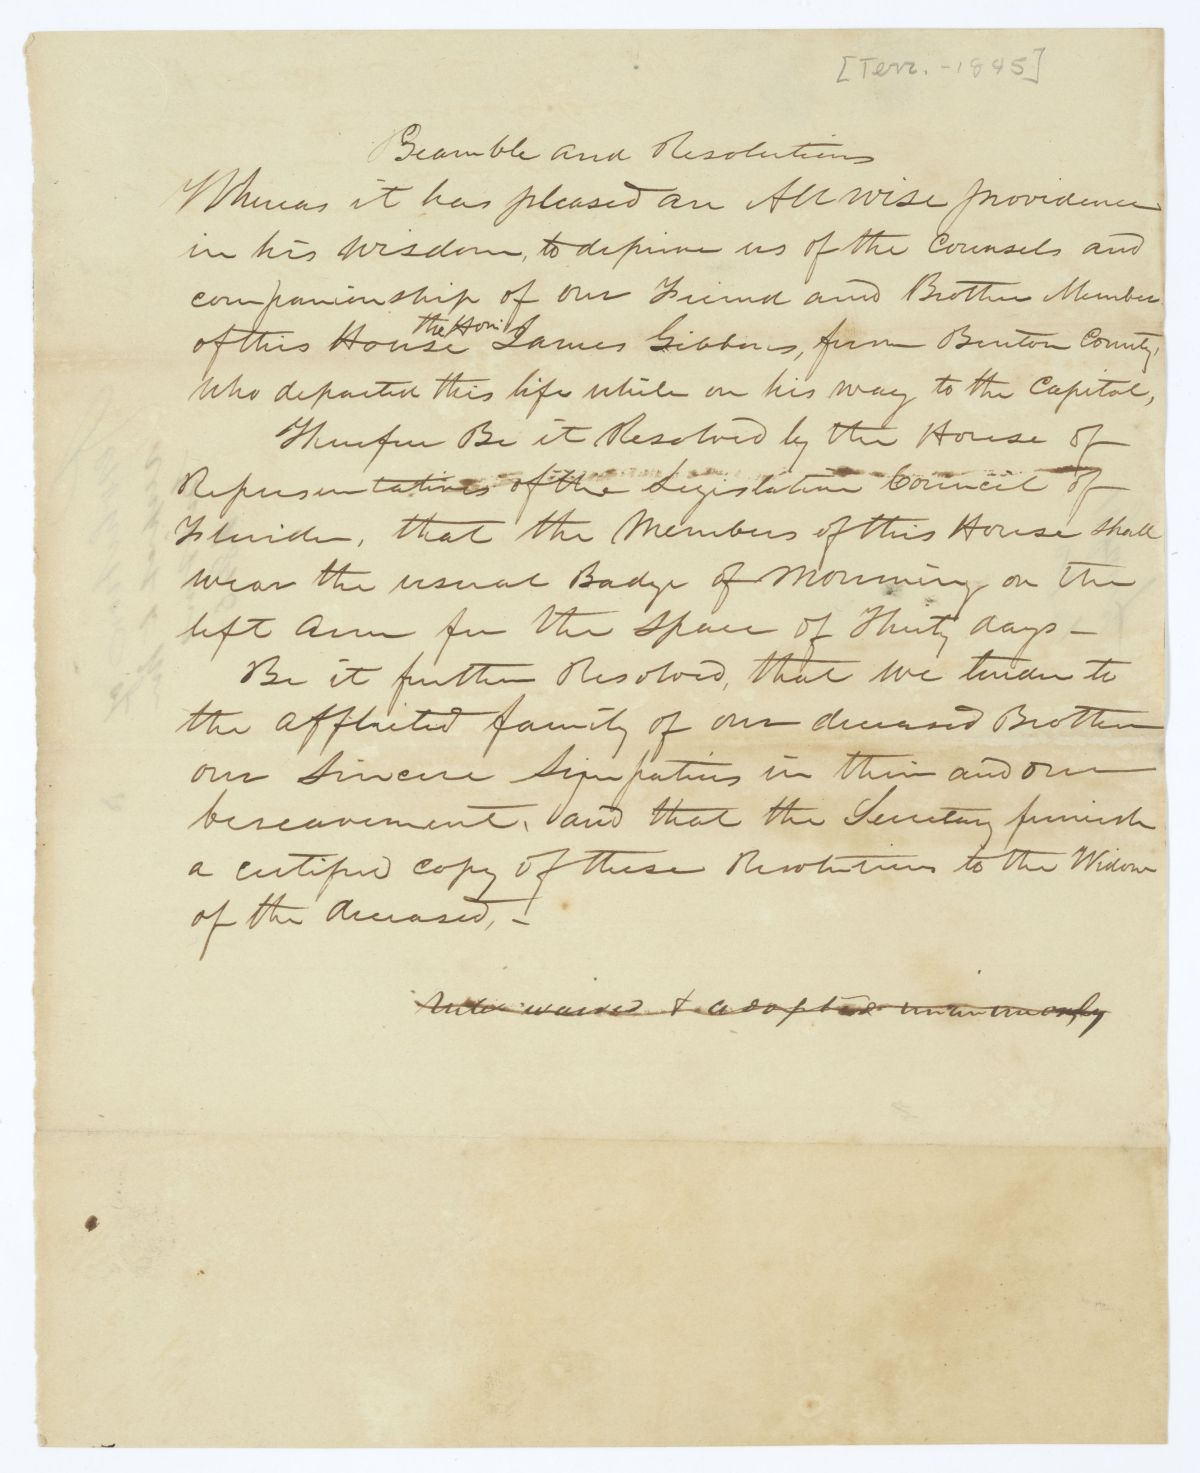 [Terr. - 1845]
Preamble and Resolutions
Whereas it has pleased an All wise providence
in his wisdom, to deprive us of the Counsels and
companionship of our Friend and Brother Member
of this House the Hon. James Gibbons, from Benton County,
who departed this life while on his way to the Capitol,
Therefore Be it Resolved by the House of
Representatives of the Legislative Council of
Florida, that the Members of this House shall
wear the usual Badge of Mourning on the
left Arm for the space of Thirty days -
Be it further Resolved, that we tender to
the afflicted family of our deceased Brother
our Sincere Simpathies in their and our
bereavement, and that the Secretary furnish
a certified copy of these Resolutions to the Widow
of the deceased, -
Rule waived & adopted unanimously